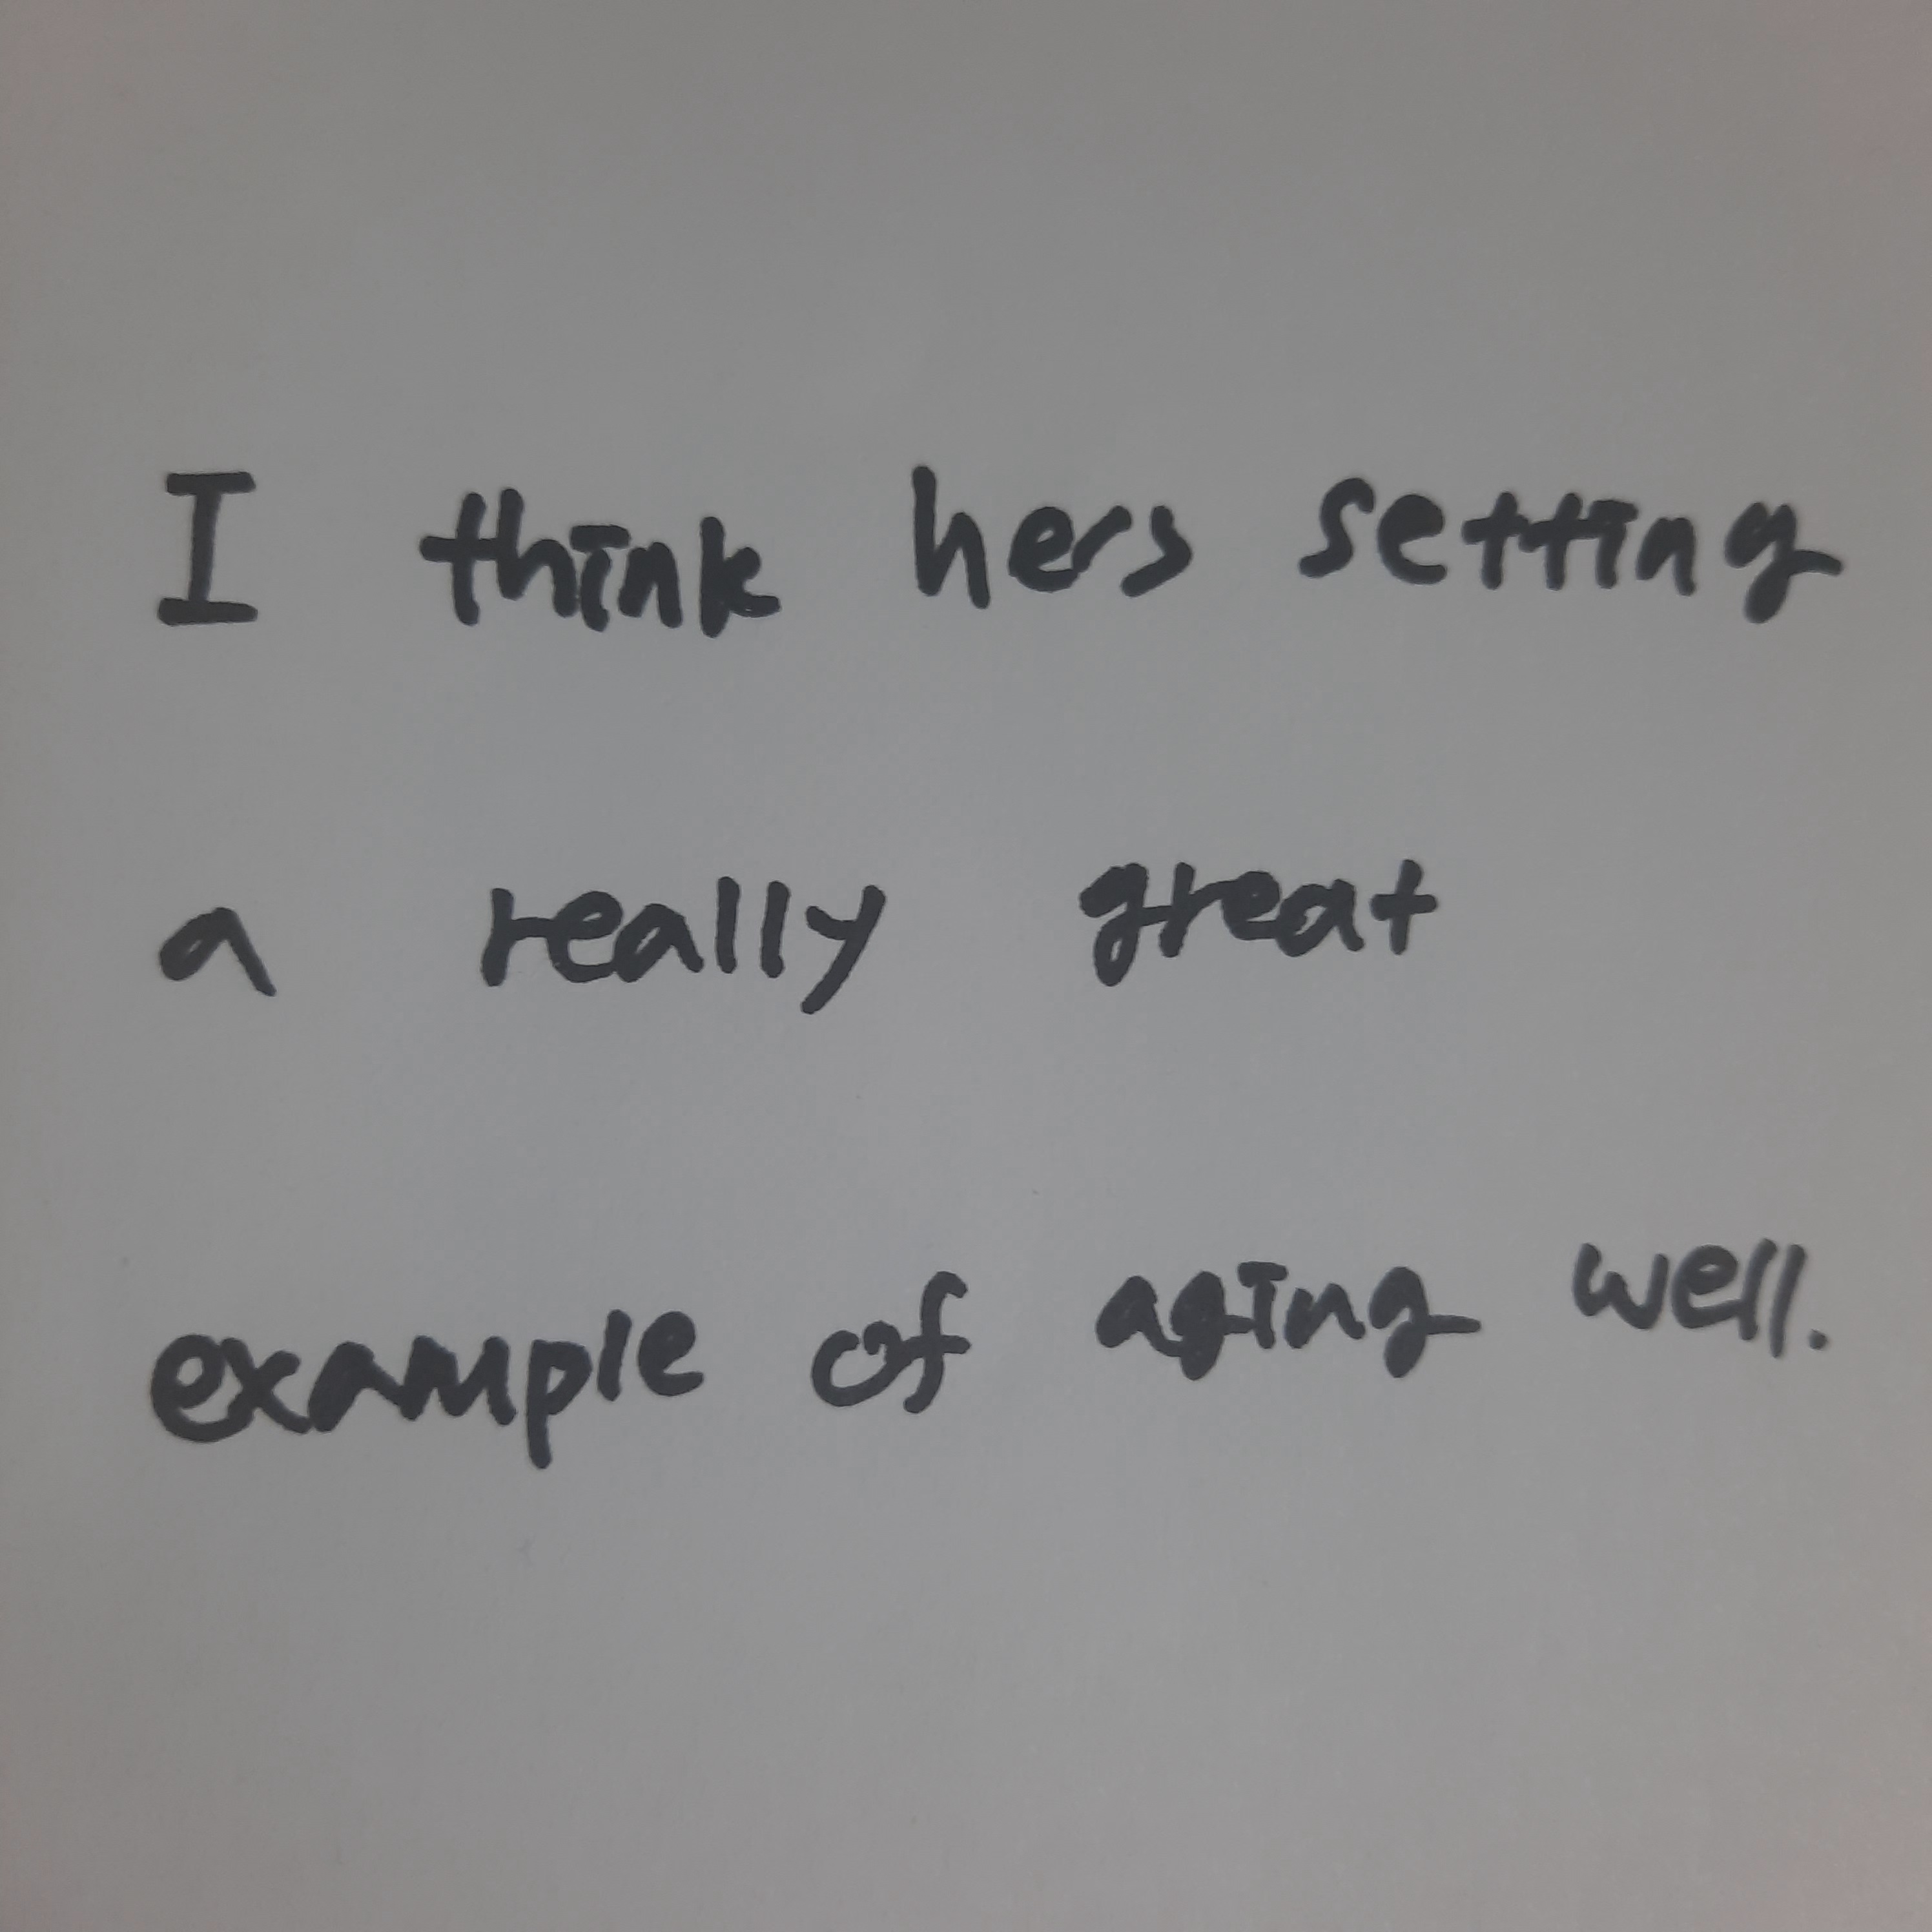 I think hers setting
a really great
example of aging well.